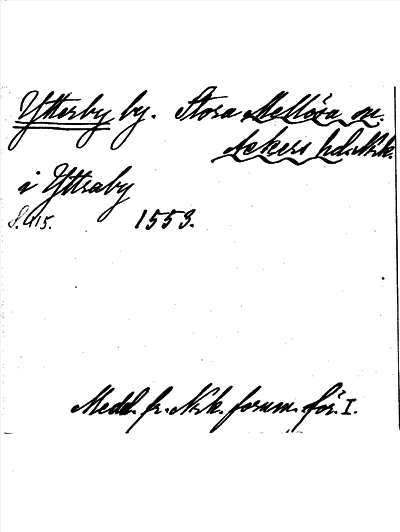 Ytterby by. Stora Mellösa sn.
Askers hd. Nrk.
i Yttraby
S. 415. 1553.
Medd. fr. Nrk. fornm. för. I.